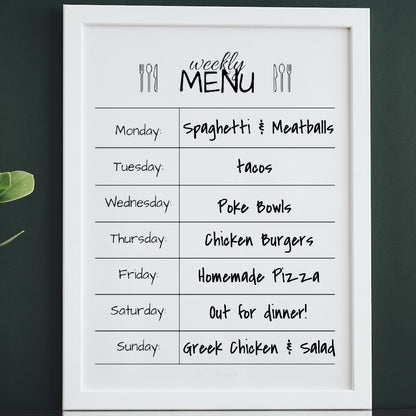 weekly
MENU
Monday: Spaghetti & Meatballs
Tuesday: tacos
Wednesday: Poke Bowls
Thursday: Chicken Burgers
Friday: Homemade Pizza
Saturday: Out for dinner!
Sunday: Greek Chicken & Salad